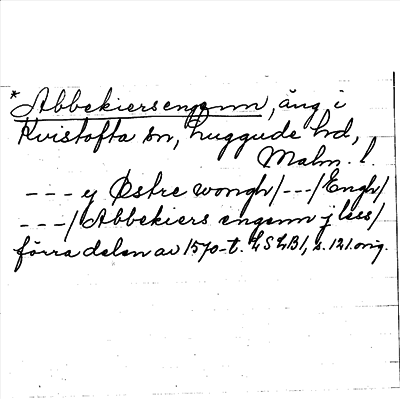 *Abbekiersengenn, äng i
Kvistofta sn, Luggude hd,
Malm. l.
--- y Østre wongh/---/Engh/
---/Abbekiers engenn j less/
förra delen av 1570-t. LSLB1, s. 121 orig.